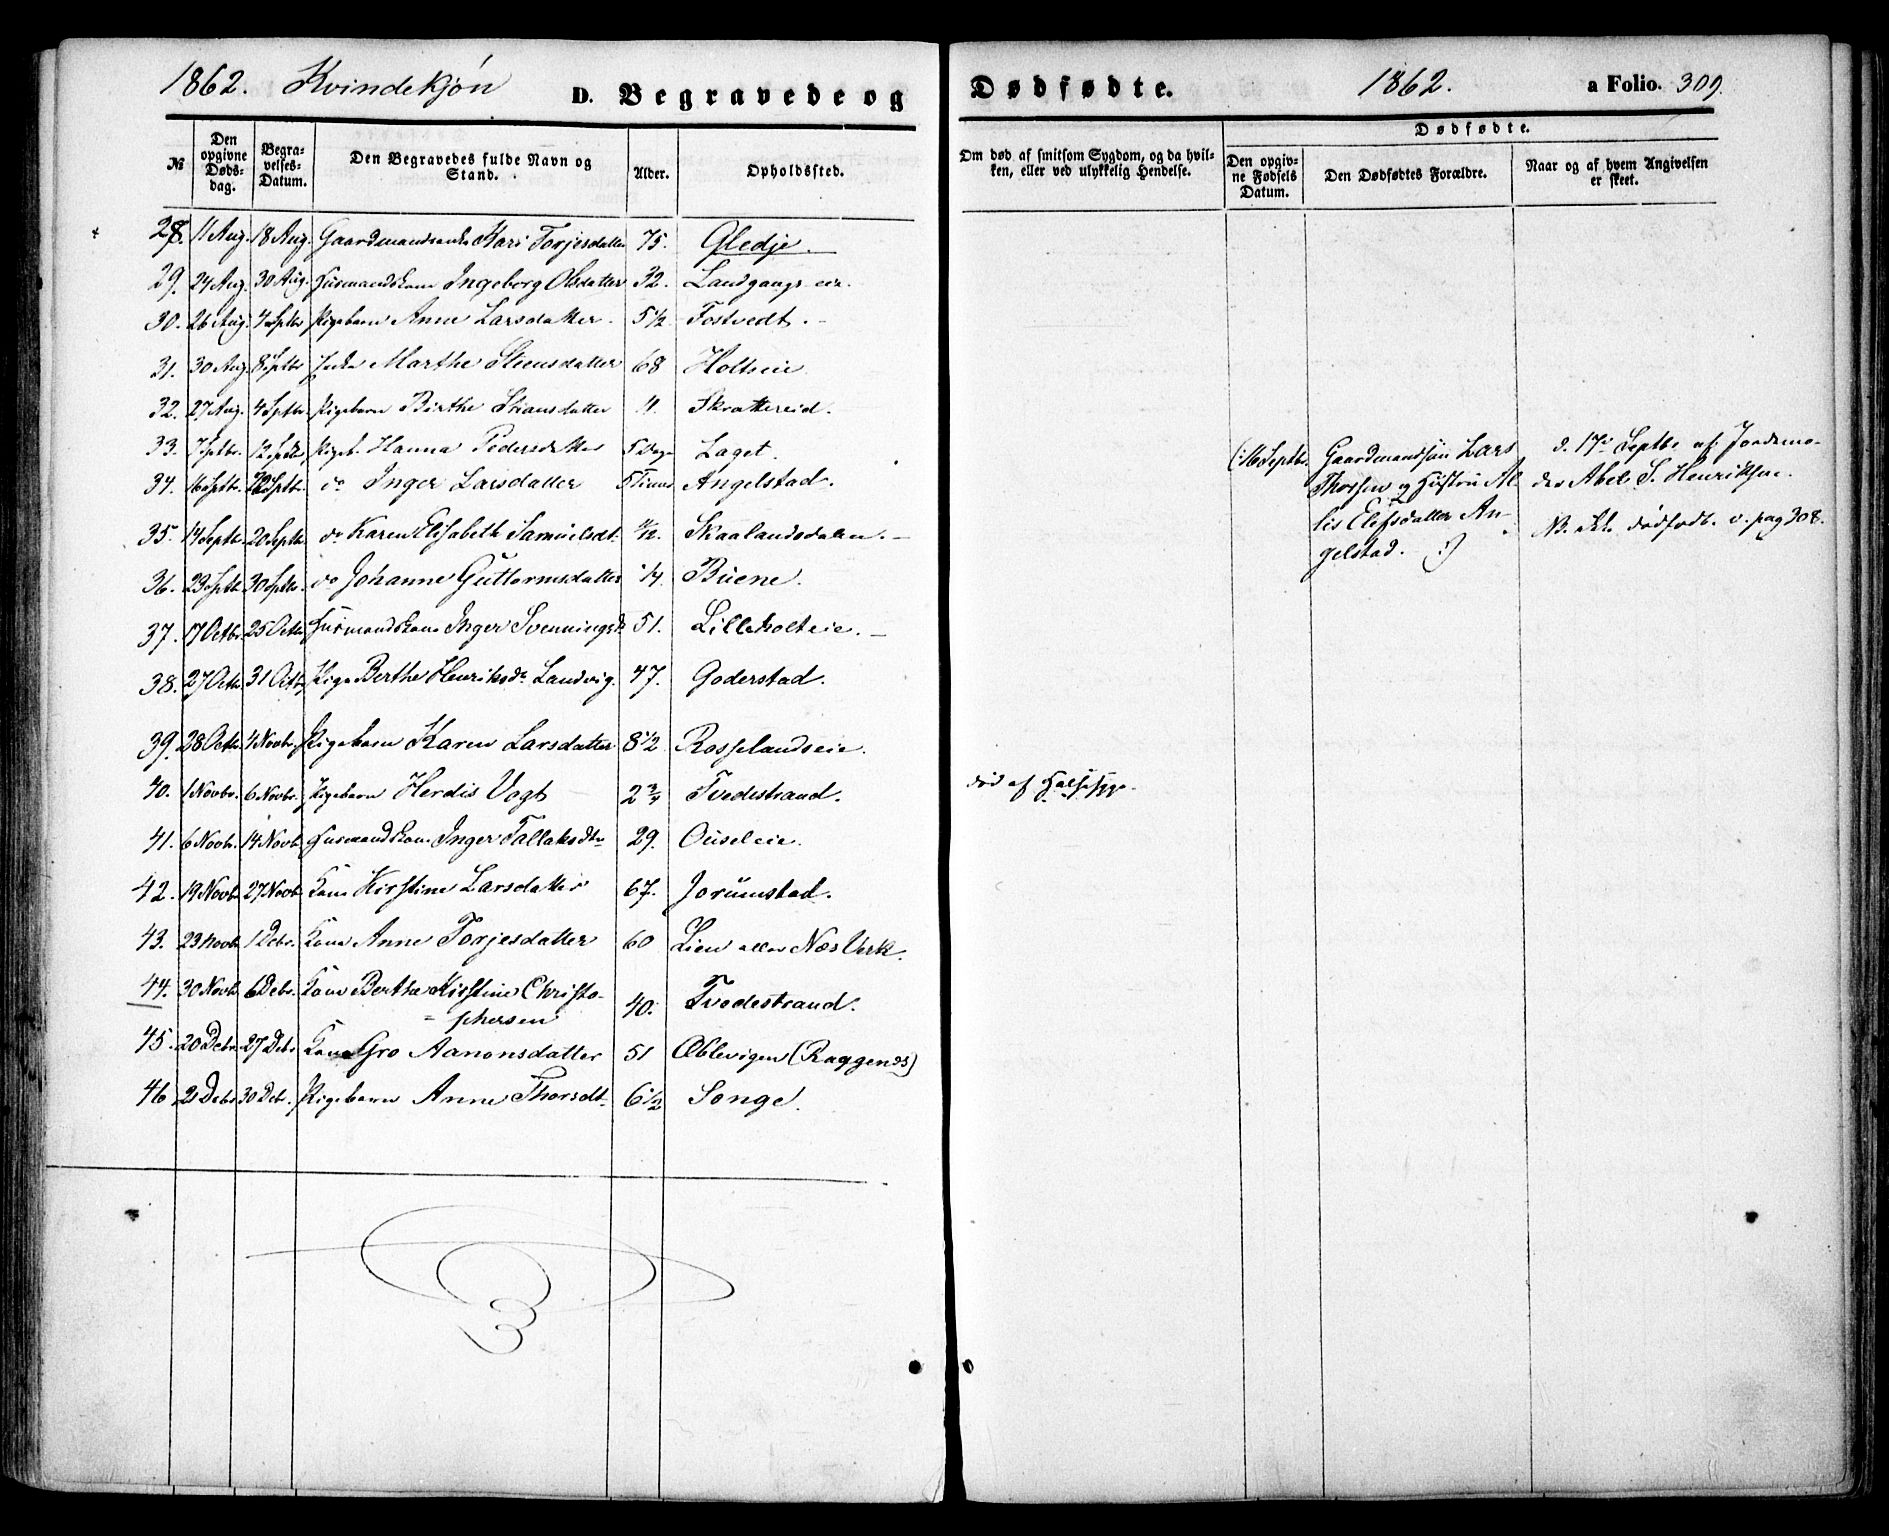 1862. Kvindekjøn D. Begravede og Dødfødte. 1862. a Folio. 309.
№
Den opgivne Døds-dag.
Begra-velses-Datum.
Den Begravedes fulde Navn og Stand.
Alder.
Opholdssted.
Om død af smitsom Sygdom, og da hvil-
ken, eller ved ulykkelig Hendelse.
Dødfødte.
Den opgiv-ne Fødsels Datum.
Den Dødfødtes Forældre.
Naar og af hvem Angivelsen er skeet.
28. 11 Aug. 18 Aug. Gaardmandsenke Kari Torjesdatter 75. Gledje.
29. 24 Aug. 30 Aug. Husmandskone Ingeborg Olsdatter 32. Landgangs eie.
30. 26 Aug. 4 Septbr Pigebarn Anne Larsdatter. 5 1/2 Fostvedt.
31. 30 Aug. 8 Septbr Enke Marthe Steensdatter 68 Holteeie
32. 27 Aug. 4 Septbr. Pigebarn Birthe Stiansdatter 11. Skrattereid.
33. 7 Septbr. 12 Septbr Pigeb. Hanna Pedersdatter 5 Dage Laget.
34. 16 Septbr. Septbr. do Inger Larsdatter 5 Timer Angelstad.
35. 14 Septbr. 20 Septbr do Karen Elisabeth Samuelsdt. 1/2. Skaalandsdalen.
36. 23 Septbr 30 Septbr. do Johanne Guttormsdatter 1/4. Buene.
37. 17 Octbr. 25 Octbr Husmandskone Inger Svenningsdt. 51. Lilleholteie.
38. 27 Octbr. 31 Octbr Pige Berthe Henriksdr. Landvig. 47. Goderstad.
39. 28 Octbr. 4 Novbr. Pigebarn Karen Larsdatter 8 1/2 Rosselandseie.
40. 1 Novbr. 6 Novbr. Pigebarn Herdis Vogt 2 3/4 Tvedestrand. død af Halssyge.
41. 6 Novbr. 14 Novbr Husmandskone Inger Tallaksdtr 29. Ouseleie.
42. 19 Novbr 27 Novbr Kone Kirstine Larsdatter 67. Jorunstad.
43. 23 Novbr 1 Debr. Kone Anne Torjesdatter 60 Lien eller Næs Verk.
44. 30 Novbr 6 Debr. Kone Berthe Kirstine Christo-
phersen 40. Tvedestrand.
45. 20 Debr. 27 Debr Kone Gro Aanonsdatter 51 Øblevigen (Raggends)
46. 2 Debr 30 Debr. Pigebarn Anne Thorsdt. 6 1/2 Songe.
(: 16 Septbr. Gaardmandsøn Lars
Thorsen og Hustru Al-
lis Elefsdatter An-
gelstad. :)
d. 17de Septbr. af Jordemo-
der Abel S. Henriksen.
NB. ikke dødfødt. v. pag 308.